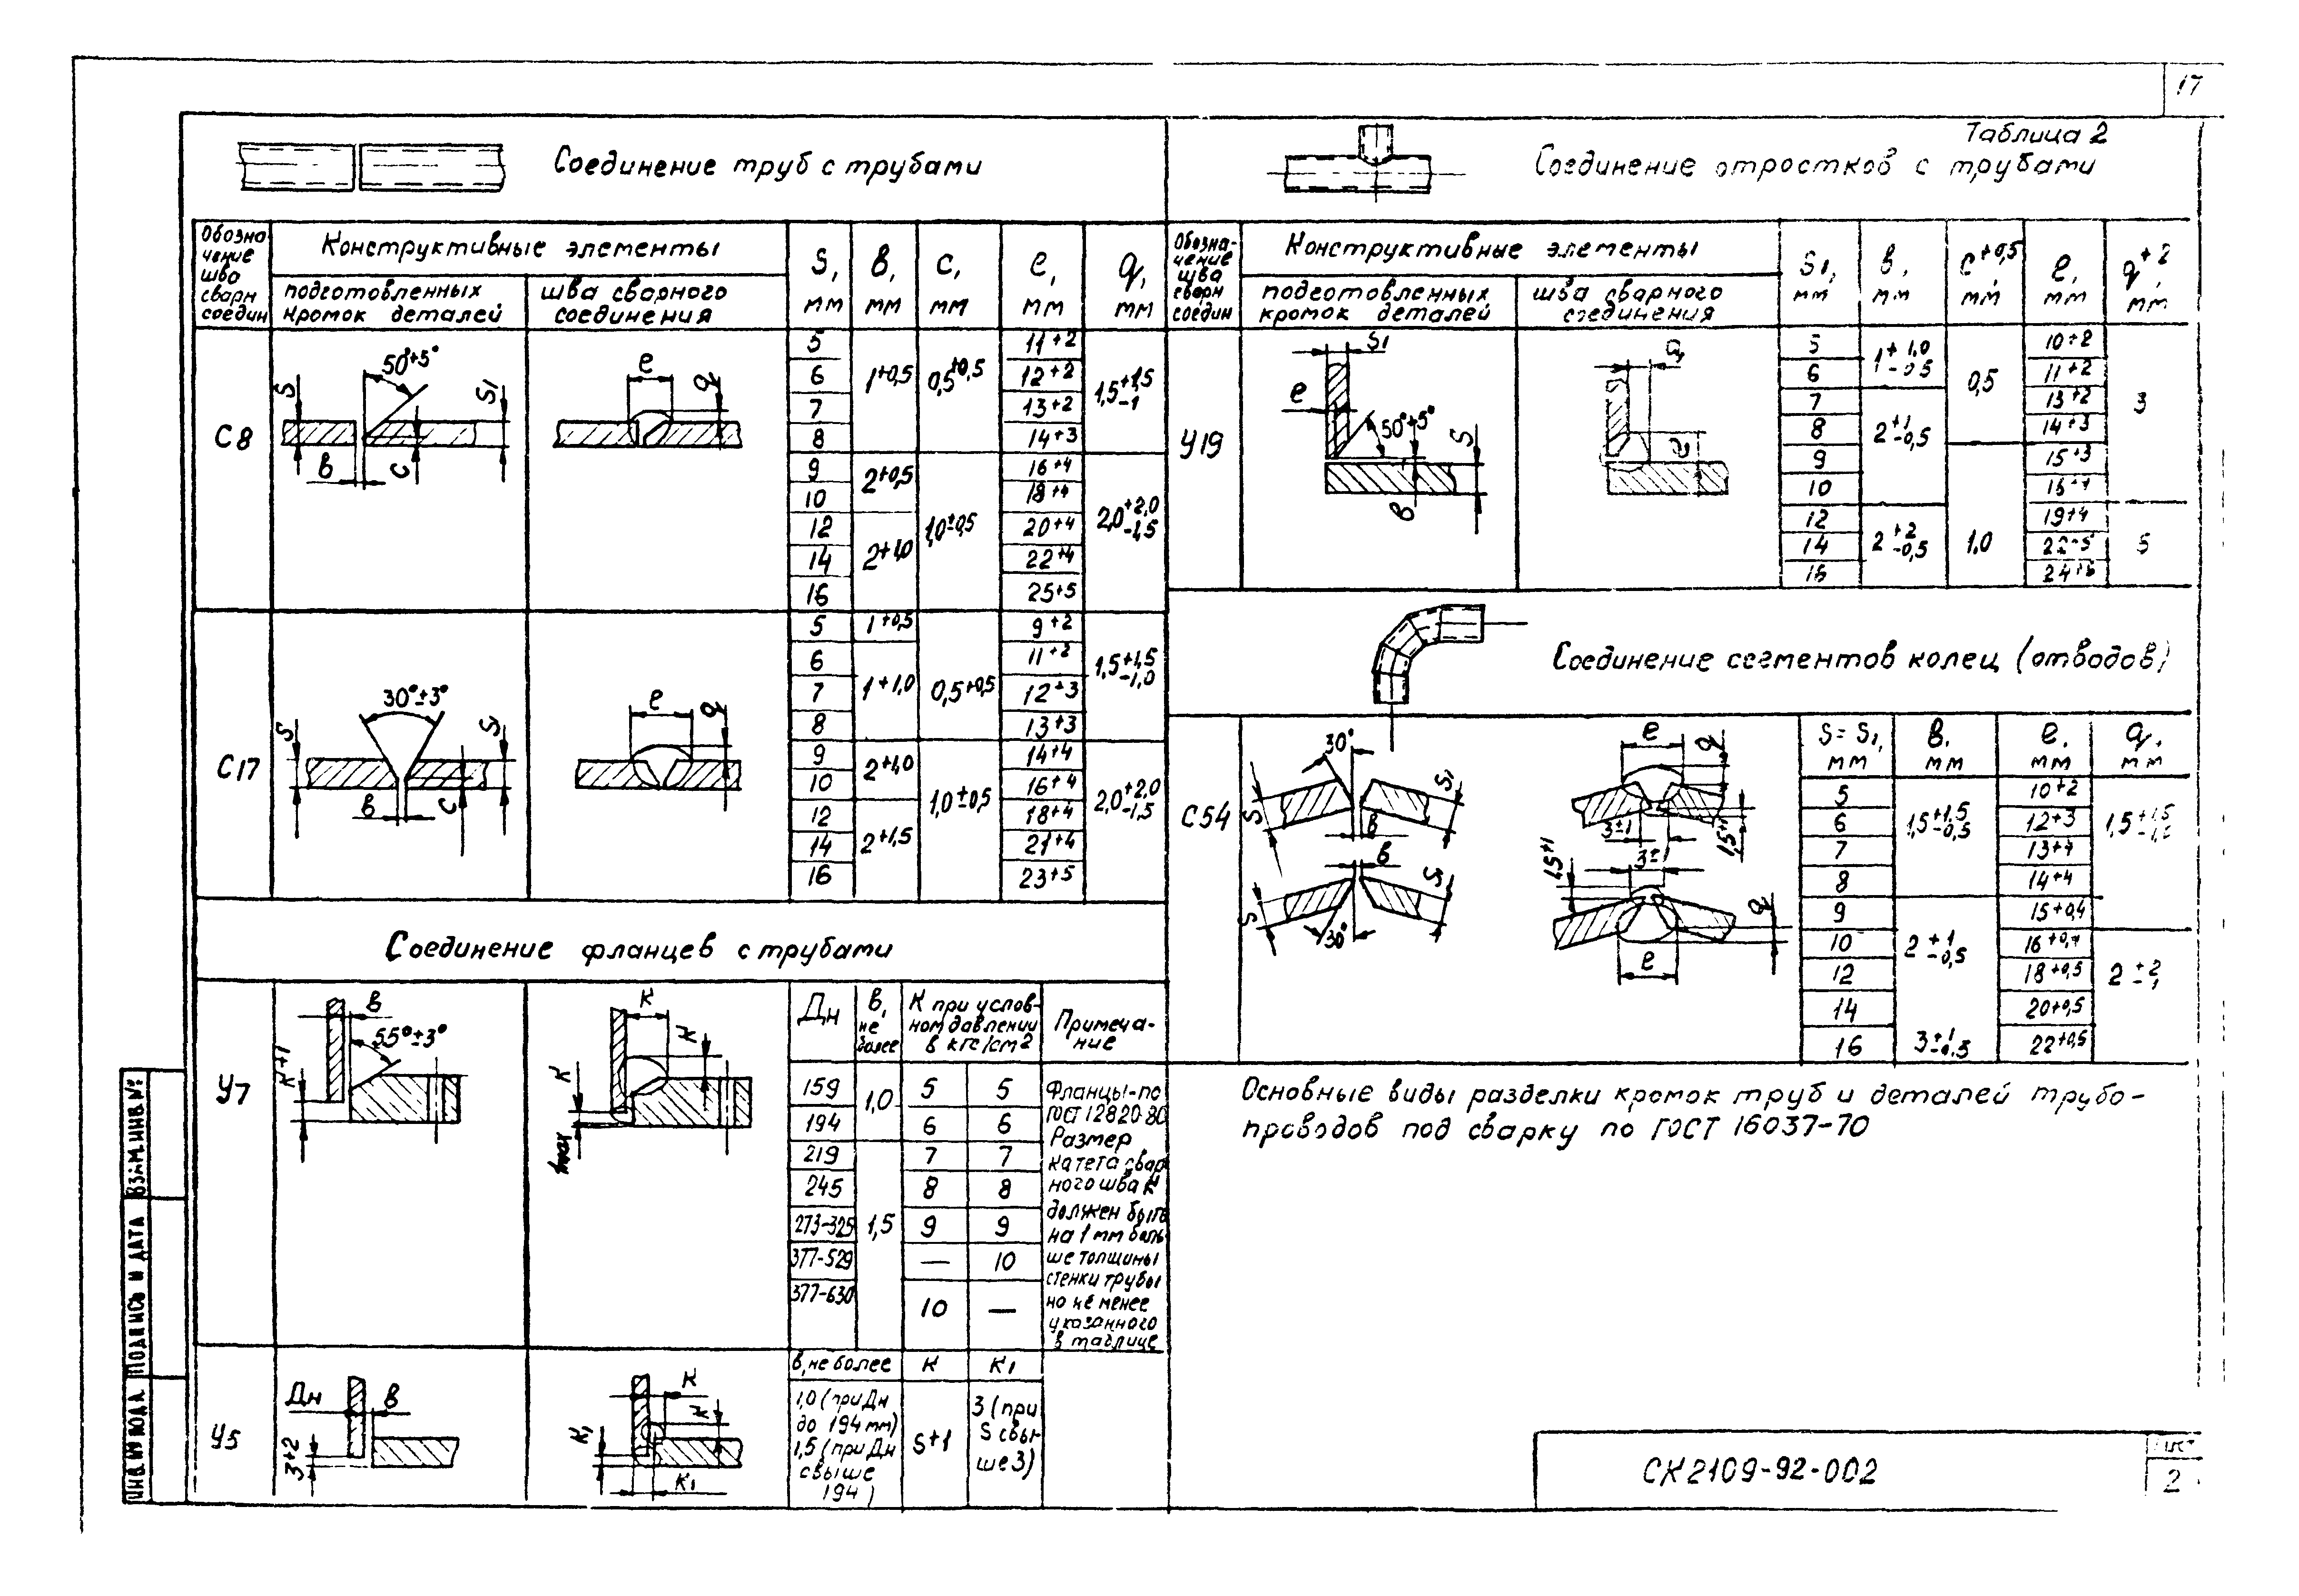 17
Таблица 2
Соединение труб с трубами
Обозна
чение
шва
сварн
соедин
Конструктивные элементы
подготовленных
кромок деталей
шва сварного
соединения
S, мм
в, мм
с, мм
е, мм
q, мм
С8
50°+5°
S
S1
в
с
е
q
5
6
7
8
9
10
12
14
16
1+0,5
2+0,5
2+1,0
0,5+0,5
1,0±0,5
11+2
12+2
13+2
14+3
16+4
18+4
20+4
22+4
25+5
1,5+1,5-1
2,0+2,0-1,5
С17
30°±3°
S
S1
в
с
е
q
5
6
7
8
9
10
12
14
16
1+0,5
1+1,0
2+1,0
2+1,5
0,5+0,5
1,0±0,5
9+2
11+2
12+3
13+3
14+4
16+4
18+4
21+4
23+5
1,5+1,5-1,0
2,0+2,0-1,5
Соединение фланцев с трубами
У7
в
55°±3°
К+1
К
К
К
Дн
в, не более
К при услов-
ном давлении
в кгс/см2
Примеча-
ние
159 1,0 5 5
194 6 6
219 7 7
245 8 8
273-325 1,5 9 9
377-529 — 10
377-630 10 —
Фланцы-по
ГОСТ 12820-80
Размер
катета свар
ного шва К
должен быть
на 1 мм боль
ше толщины
стенки трубы
но не менее
указанного
в таблице
У5
Дн
в
3+2
К
К
К1
К1
в, не более К К1
1,0 (при Дн
до 194 мм)
1,5 (при Дн
свыше
194)
S+1
3 (при
S свы-
ше 3)
Соединение отростков с трубами
Обозна-
чение
шва
сварн
соедин
Конструктивные элементы
подготовленных
кромок деталей
шва сварного
соединения
S1, мм
в, мм
с+0,5, мм
е, мм
q+2, мм
У19
S1
е
50°+5°
S
в
5
6
7
8
9
10
12
14
16
1+1,0-0,5
2+1-0,5
2+2-0,5
0,5
1,0
10+2
11+2
13+2
14+3
15+3
19+4
3
5
Соединение сегментов колец (отводов)
С54
30°
S
S1
в
в
S
S1
30°
е
q
3±1
1,5+1
1,5+1
е
q
S=S1, мм
в, мм
е, мм
q, мм
5
6
7
8
9
10
12
14
16
1,5+1,5-0,5
2+1-0,5
10+2
12+3
13+4
14+4
15+0,4
18+0,5
20+0,5
22+0,5
Основные виды разделки кромок труб и деталей трубо-
проводов под сварку по ГОСТ 16037-70
ВЗАМ.ИНВ №
ПОДПИСЬ И ДАТА
ИНВ № ПОДЛ
СК 2109-92-002
2